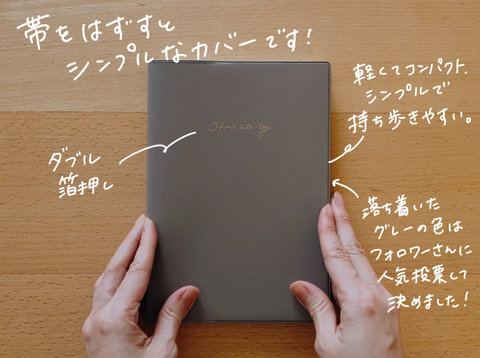 帯をはずすと
シンプルなカバーです!
軽くてコンパクト.
シンプルで
持ち歩きやすい。
ダブル
箔押し
落ち着いた
グレーの色は
フォロワーさんに
人気投票して
決めました!